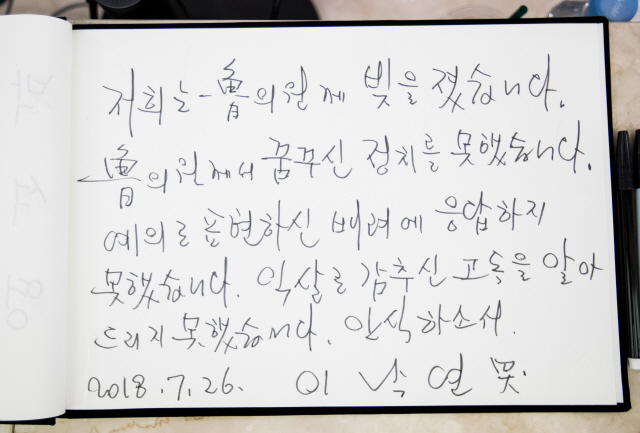 저희는 魯의원께 빚을 졌습니다.
魯의원께서 꿈꾸신 정치를 못했습니다.
예의로 표현하신 배려에 응답하지
못했습니다. 익살로 감추신 고독을 알아
드리지 못했습니다. 안식하소서.
2018.7.26. 이 낙 연